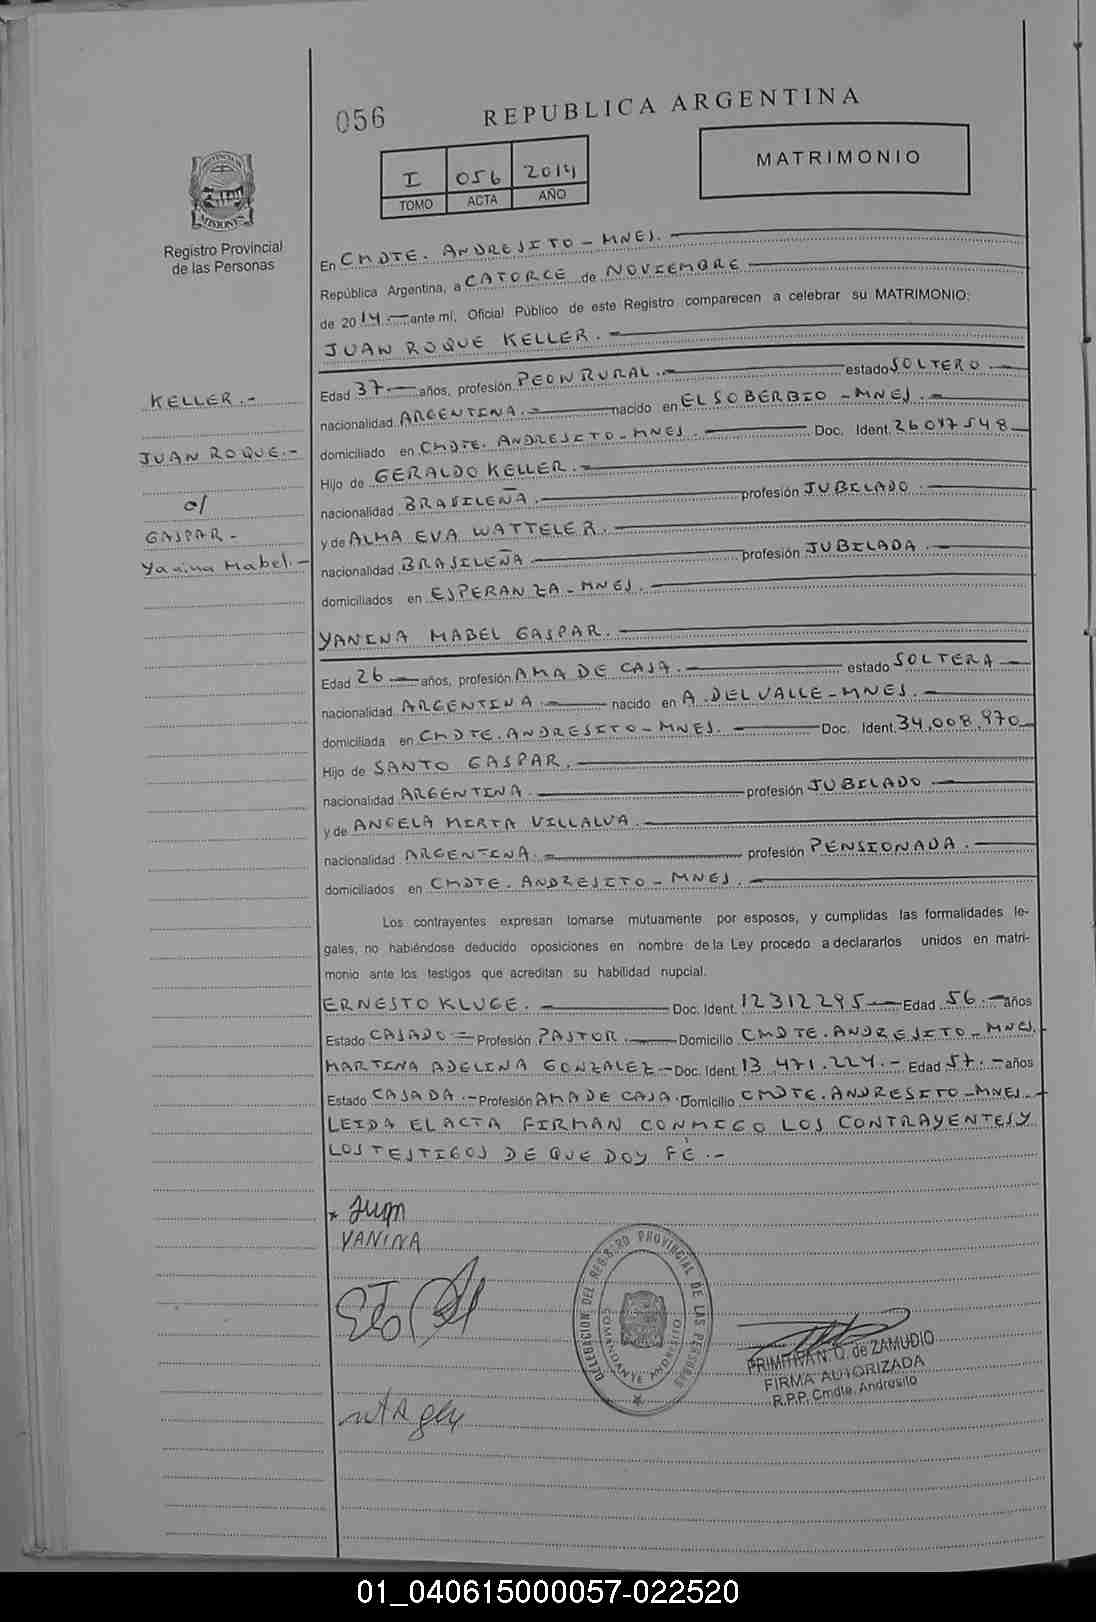 056
REPUBLICA ARGENTINA
I 056 2014
TOMO ACTA AÑO
MATRIMONIO
PROVINCIA DE
MISIONES
Registro Provincial
de las Personas
En CMDTE. ANDRESITO - MNES.
República Argentina, a CATORCE de NOVIEMBRE
de 2014.- ante mí, Oficial Público de este Registro comparecen a celebrar su MATRIMONIO:
JUAN ROQUE KELLER.-
KELLER.-
JUAN ROQUE.-
a/
GASPAR-
Yanina Mabel.-
Edad 37.- años, profesión PEON RURAL.- estado SOLTERO.-
nacionalidad ARGENTINA.- nacido en EL SOBERBIO - MNES.-
domiciliado en CMDTE. ANDRESITO - MNES. Doc. Ident. 26047548
Hijo de GERALDO KELLER.-
nacionalidad BRASILEÑA. profesión JUBILADO.-
y de ALMA EVA WATTELER.-
nacionalidad BRASILEÑA profesión JUBILADA.-
domiciliados en ESPERANZA - MNES.-
YANINA MABEL GASPAR.-
Edad 26.- años, profesión AMA DE CASA.- estado SOLTERA.-
nacionalidad ARGENTINA.- nacido en A. DEL VALLE - MNES.-
domiciliada en CMDTE. ANDRESITO - MNES.- Doc. Ident. 34.008.970
Hijo de SANTO GASPAR.-
nacionalidad ARGENTINA. profesión JUBILADO-
y de ANGELA MIRTA VILLALVA.-
nacionalidad ARGENTINA.- profesión PENSIONADA.-
domiciliados en CMDTE. ANDRESITO - MNES.-
Los contrayentes expresan tomarse mutuamente por esposos, y cumplidas las formalidades le-
gales, no habiéndose deducido oposiciones en nombre de la Ley procedo a declararlos unidos en matri-
monio ante los testigos que acreditan su habilidad nupcial.
ERNESTO KLUGE.- Doc. Ident. 12312295- Edad 56.- años
Estado CASADO- Profesión PASTOR.- Domicilio CMDTE. ANDRESITO - MNES.
MARTINA ADELINA GONZALEZ- Doc. Ident. 13.471.224.- Edad 57.- años
Estado CASADA.- Profesión AMA DE CASA. Domicilio CMDTE. ANDRESITO - MNES.-
LEIDA EL ACTA FIRMAN CONMIGO LOS CONTRAYENTES Y
LOS TESTIGOS DE QUE DOY FÉ.-
YANINA
DELEGACION DEL REGISTRO PROVINCIAL DE LAS PERSONAS
COMANDANTE ANDRESITO
PRIMITIVA N. O. de ZAMUDIO
FIRMA AUTORIZADA
R.P.P. Cmdte. Andresito
01_040615000057-022520